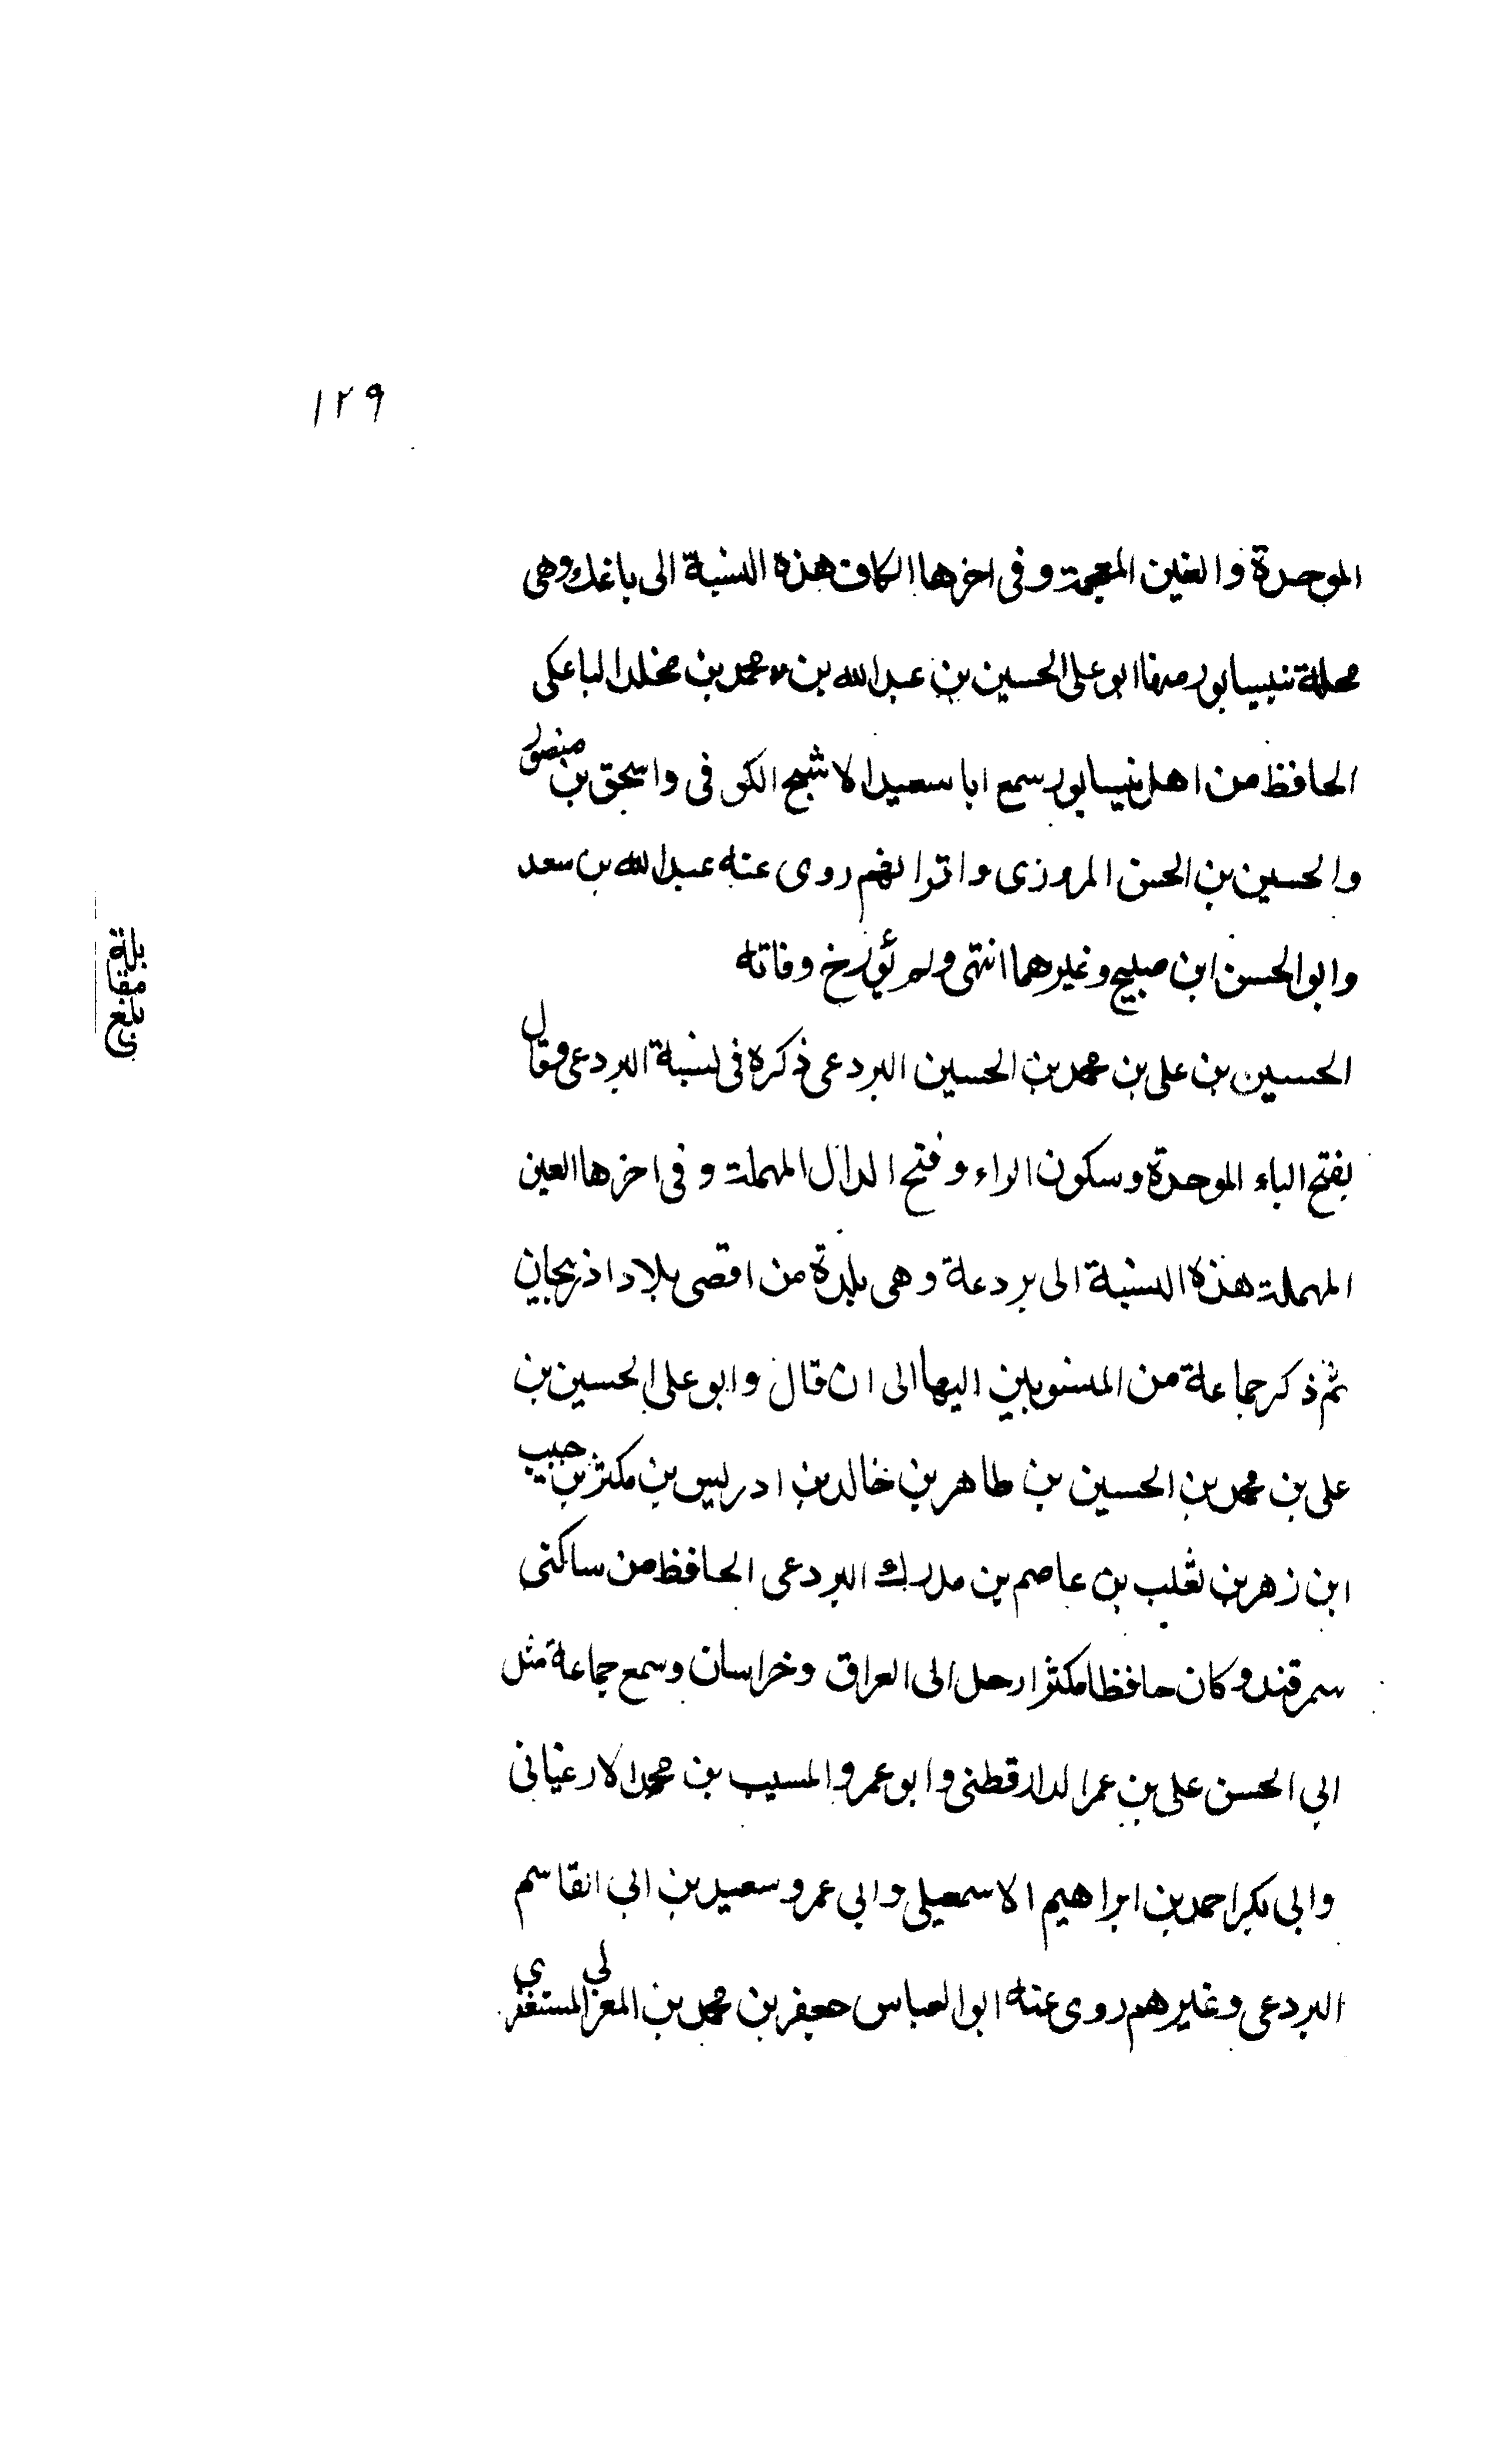 ١٢٩
الموحدة والغين المعجمة وفى اخرها الكاف هذه النسبة الى باغك وهى
محلة نيسابور منها ابو على الحسين بن عبد الله بن محمد بن مخلد الباغكى
الحافظ من اهل نيسابور سمع ابا سعيد الاشج الكوفى واسحق بن منصور
والحسين بن الحسن المروزى واقرانهم روى عنه عبد الله بن سعد
وابو الحسن ابن صبيح وغيرهما انتهى ولم يؤرخ وفاته
الحسين بن على بن محمد بن الحسين البردعى ذكره فى نسبة البردعى وقال
بفتح الباء الموحدة وسكون الراء وفتح الدال المهملة وفى اخرها العين
المهملة هذه النسبة الى بردعة وهى بلدة من اقصى بلاد اذربيجان
ثم ذكر جماعة من المنسوبين اليها الى ان قال وابو على الحسين بن
على بن محمد بن الحسين بن طاهر بن خالد بن ادريس بن مكثر بن حبيب
ابن زهر بن تغلب بن عاصم بن مدرك البردعى الحافظ من ساكنى
سمرقند وكان حافظا مكثرا رحل الى العراق وخراسان وسمع جماعة مثل
ابى الحسن على بن عمر الدارقطنى وابو عمرو المسيب بن محمد الارغيانى
وابى بكر احمد بن ابراهيم الاسمعيلى وابى عمرو سعيد بن ابى القاسم
البردعى وغيرهم روى عنه ابو العباس جعفر بن محمد بن المعز المستغفرى
بلغ مقابلة